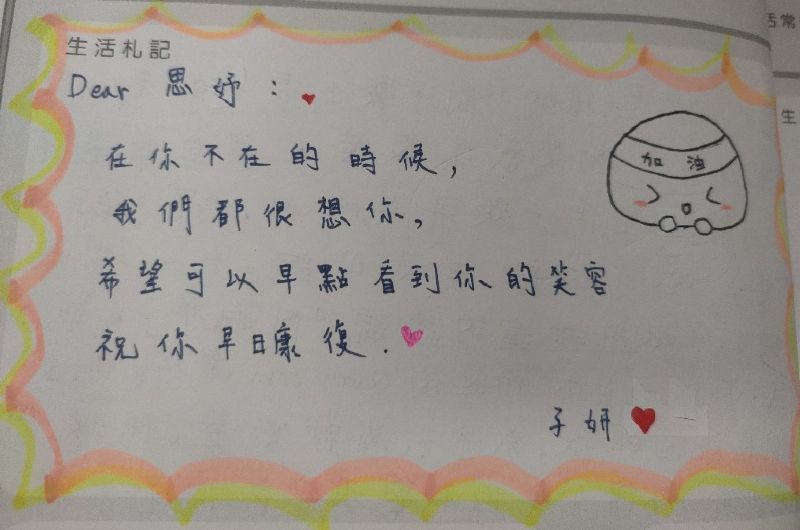 生活札記
Dear 思妤：
加油
在你不在的時候，
我們都很想你，
希望可以早點看到你的笑容
祝你早日康復．
子妍
活常
生